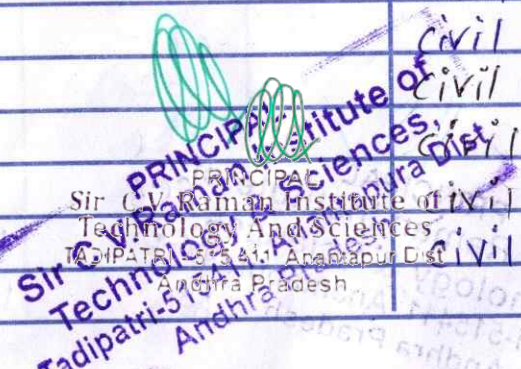 Civil
Civil
Civil
Civil
Civil
PRINCIPAL
Sir C.V. Raman Institute of
Technology & Sciences,
Tadipatri-515411. Anantapura Dist.
Andhra Pradesh
PRINCIPAL
Sir C.V. Raman Institute of
Technology And Sciences
TADIPATRI - 515 411 Anantapur Dist
Andhra Pradesh